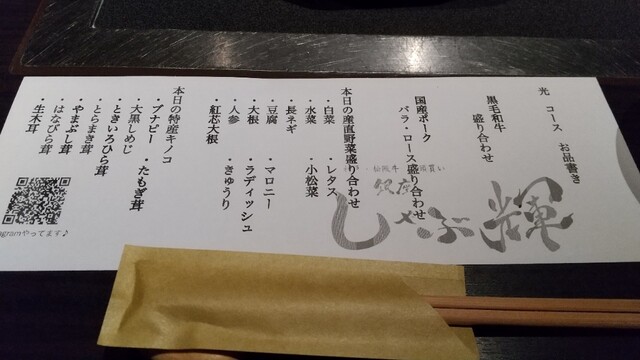 光 コース お品書き
黒毛和牛
盛り合わせ
国産ポーク
バラ・ロース盛り合わせ
本日の産直野菜盛り合わせ
・白菜 ・レタス
・水菜 ・小松菜
・長ネギ
・豆腐 ・マロニー
・大根 ・ラディッシュ
・人参 ・きゅうり
・紅芯大根
本日の特産キノコ
・ブナピー ・たもぎ茸
・大黒しめじ
・ときいろひら茸
・とらまき茸
・やまぶし茸
・はなびら茸
・生木耳
銀座
しゃぶ輝
gramやってます♪